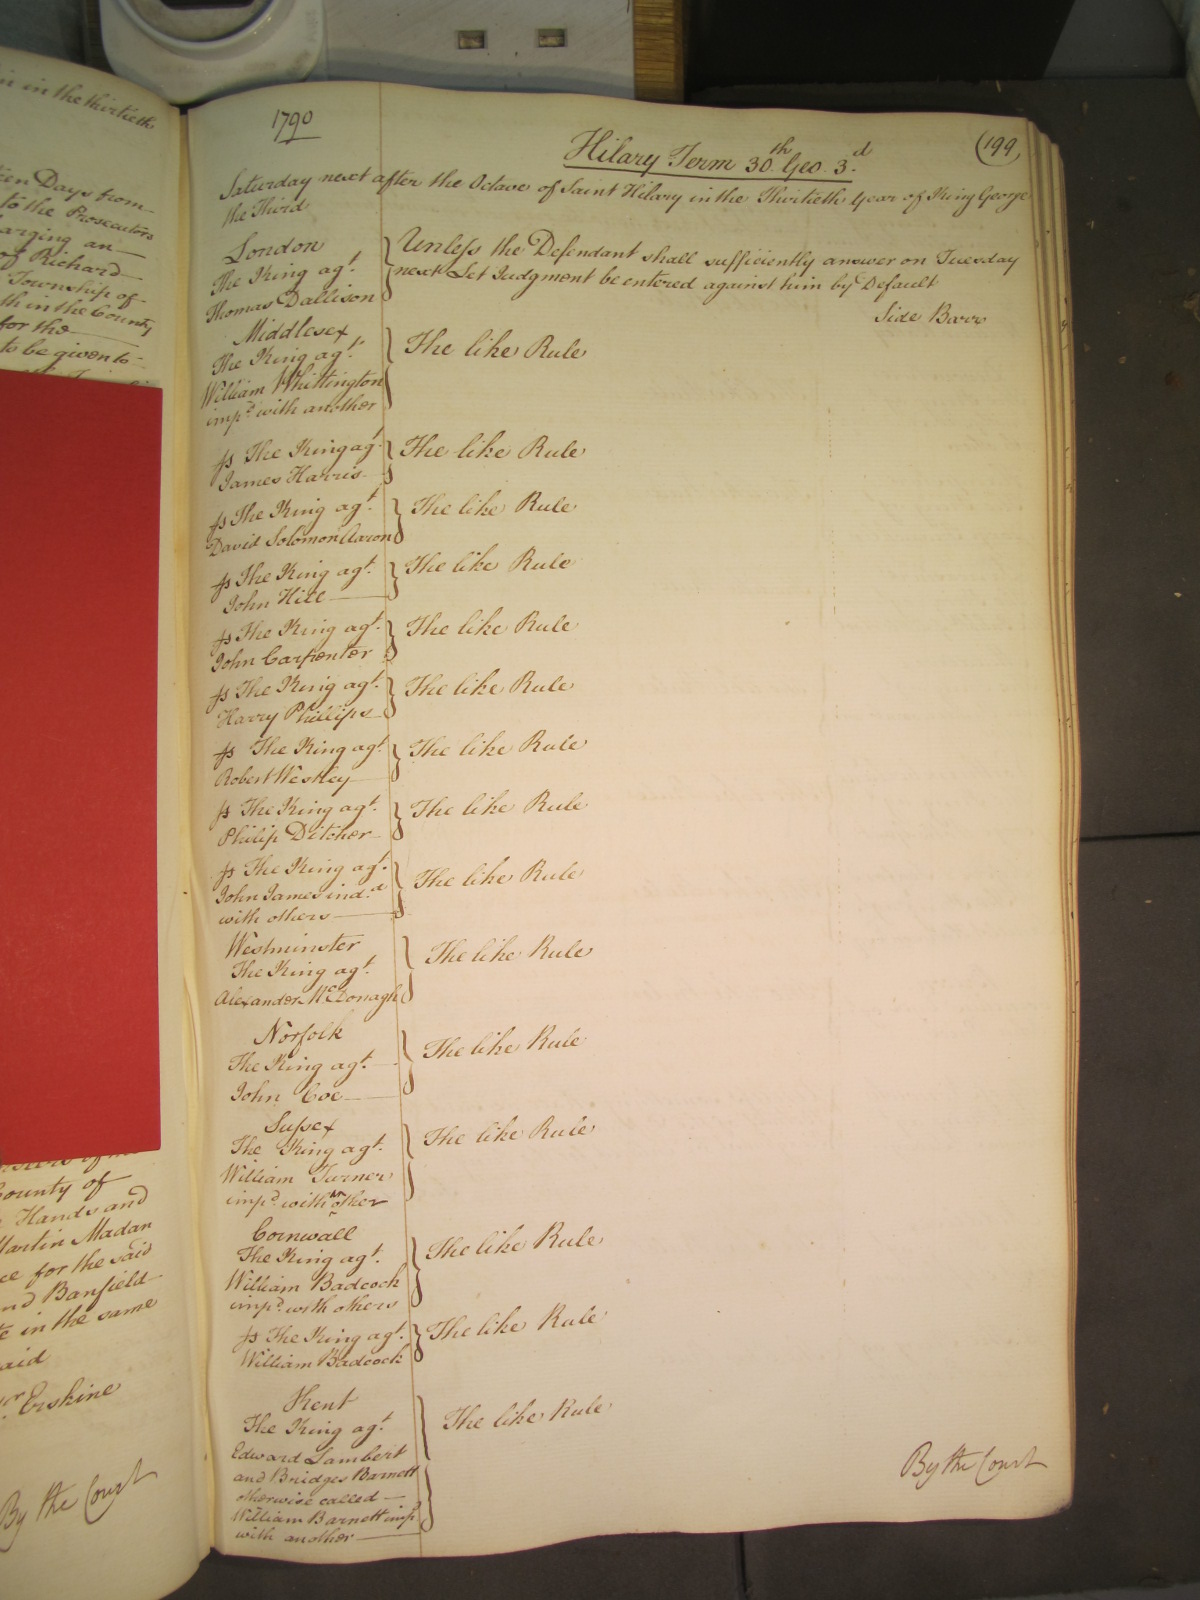 in in the thirtieth
een Days from
to the Prosecutors
arging an
of Richard
Township of
th in the County
for the
to be given to
County of
Hands and
Martin Madan
ce for the said
nd Banfield
te in the same
aid
Erskine
By the Court
1790
Hilary Term 30th Geo. 3d
(199)
Saturday next after the Octave of Saint Hilary in the Thirtieth Year of King George
the Third
London
The King agt.
Thomas Dallison
Unless the Defendant shall sufficiently answer on Tuesday
next Let Judgment be entered against him by Default
Side Barr
Middlesex
The King agt.
William Whittington
impd. with another
The like Rule
Js The King agt
James Harris
The like Rule
Js The King agt.
David Solomon Aaron
The like Rule
Js The King agt.
John Hill
The like Rule
Js The King agt.
John Carpenter
The like Rule
Js The King agt.
Harry Phillips
The like Rule
Js The King agt.
Robert Westley
The like Rule
Js The King agt.
Philip Ditcher
The like Rule
Js The King agt.
John James ind.d
with others
The like Rule
Westminster
The King agt.
Alexander McDonagh
The like Rule
Norfolk
The King agt.
John Coe
The like Rule
Sussex
The King agt.
William Turner
impd with another
The like Rule
Cornwall
The King agt.
William Badcock
impd. with others
The like Rule
Js The King agt.
William Badcock
The like Rule
Kent
The King agt.
Edward Lambert
and Bridges Barnett
otherwise called
William Barnett imp.
with another
The like Rule
By the Court